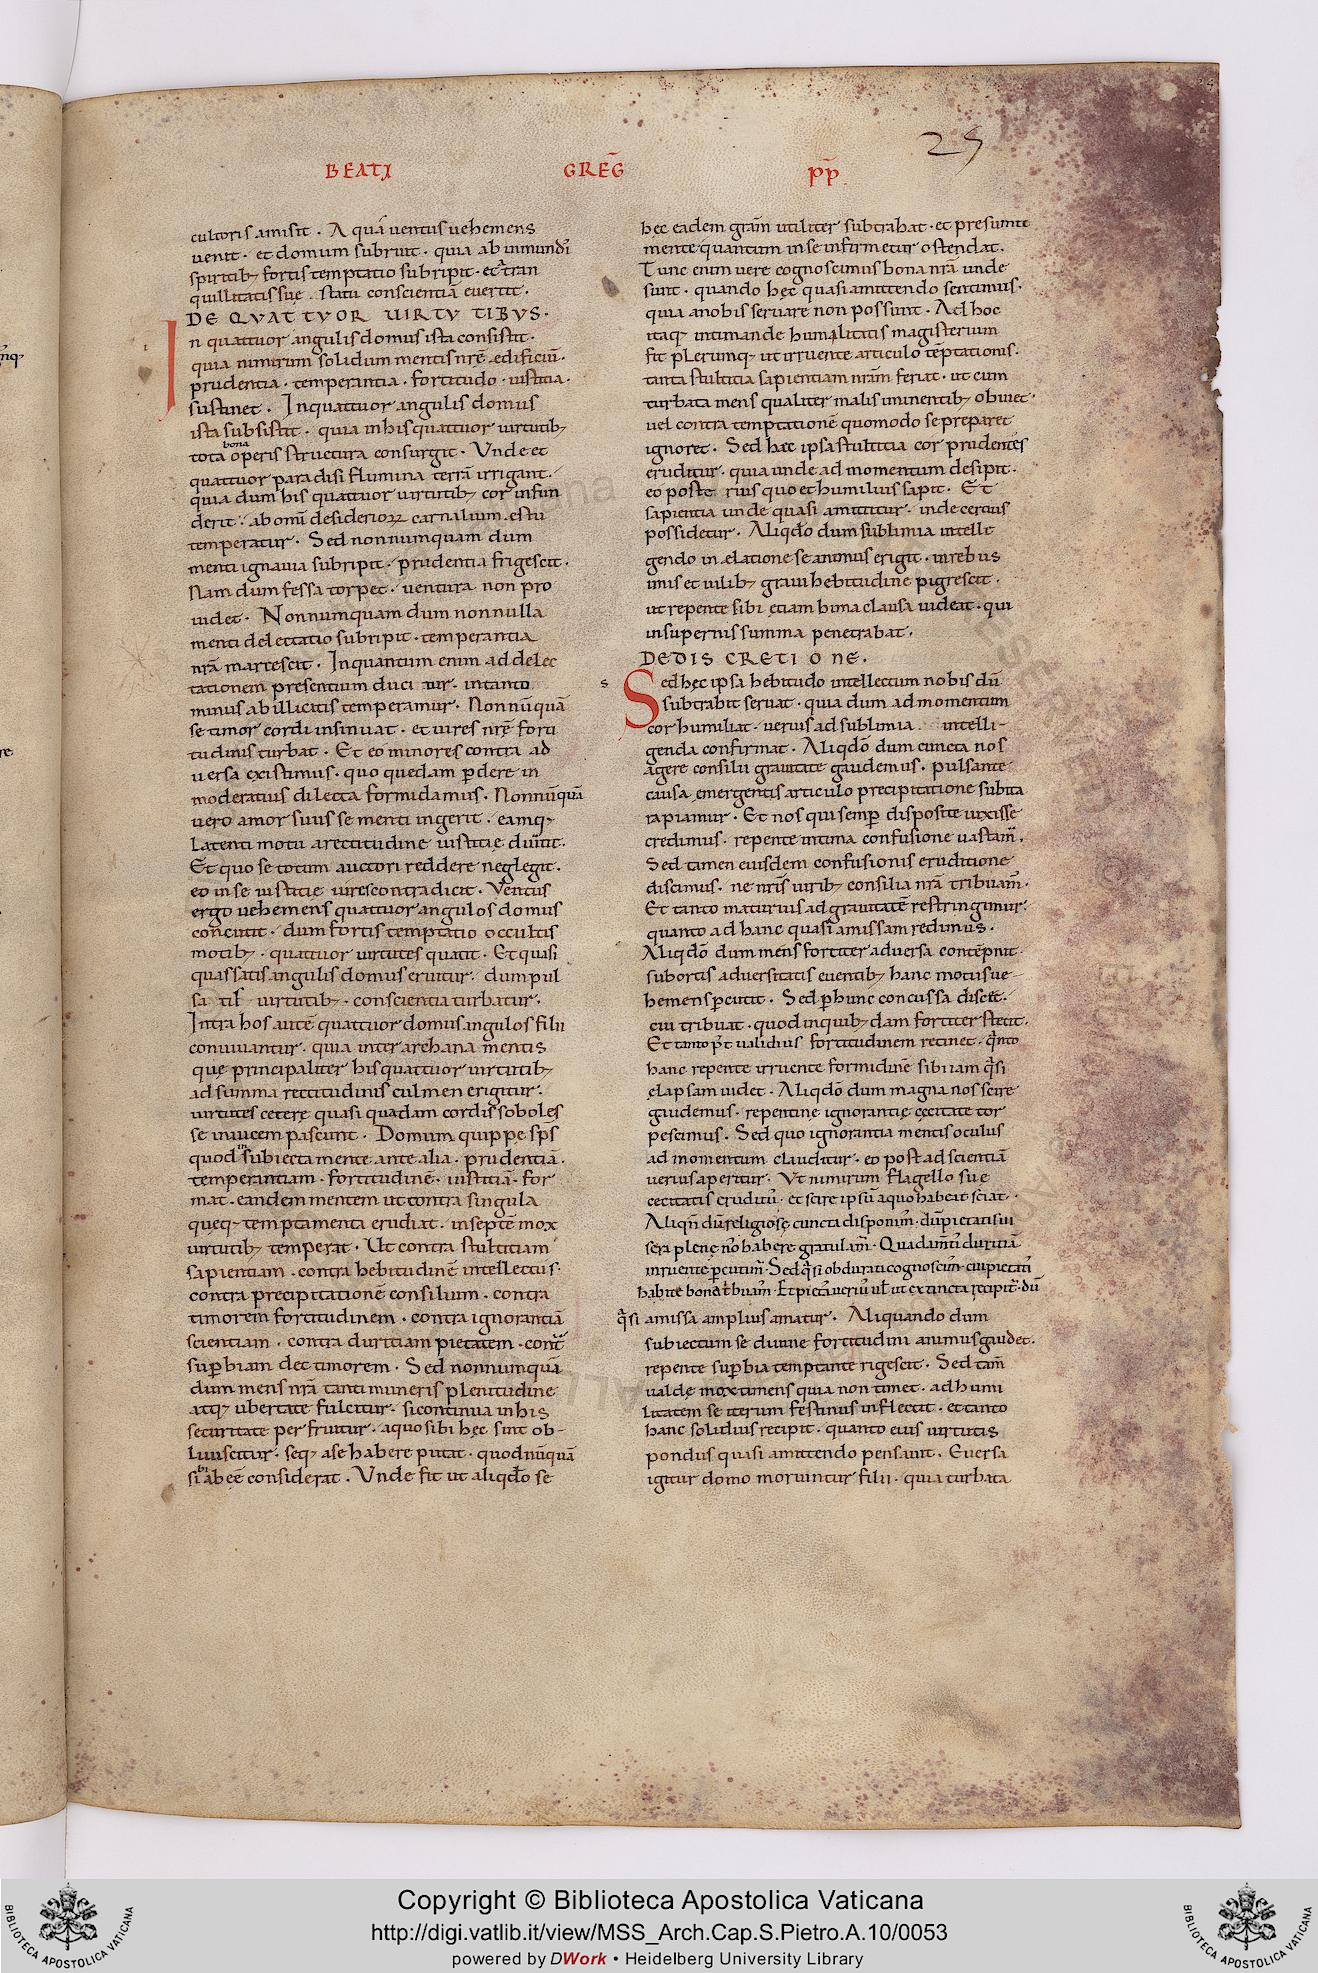 25
BEATI GREḠ PP̄
cultoris amisit . A quā uentus uehemens
uenit . et domum subruit . quia ab inmundi
spiritibꝫ fortis temptatio subripit . et tran
quillitatis suę statū conscientiā euertit .
DE QVATTVOR UIRTVTIBVS .
In quattuor angulis domus ista consistit .
quia nimirum solidum mentis nr̄ę ędificiū .
prudentia . temperantia . fortitudo . iustitia .
sustinet . In quattuor angulis domus
ista subsistit . quia in his quattuor uirtutibꝫ
tota bona operis structura consurgit . Vnde et
quattuor paradisi flumina terrā irrigant .
quia dum his quattuor uirtutibꝫ cor infun
ditur . ab omī desiderioꝝ carnalium ęstu
temperatur . Sed nonnumquam dum
menti ignauia subripit . prudentia frigescit .
Nam dum fessa torpet . uentura non pro
uidet . Nonnumquam dum nonnulla
menti delectatio subripit . temperantia
nr̄a marcescit . Inquantum enim ad delec
tationem presentium ducimur . intanto
minus ab illicitis temperamur . Nonnūquā
se timor cordi insinuat . et uires nr̄ę forti
tudinis turbat . Et eo minores contra ad
uersa existimus . quo quedam ꝑdere in
moderatius dilecta formidamus . Nonnūquā
uero amor suus se menti ingerit . eamqꝫ
latenti motu a rectitudine iustitię diuertit .
Et quo se totum auctori reddere neglegit .
eo in se iustitię uires contradicit . Ventus
ergo uehemens quattuor angulos domus
concutit . dum fortis temptatio occultis
motibꝫ . quattuor uirtutes quatit . Et quasi
quassatis angulis domus eruitur . dum pul
satis uirtutibꝫ . conscientia turbatur .
Intra hos autē quattuor domus angulos filii
conuiuantur . quia inter archana mentis
quę principaliter his quattuor uirtutibꝫ
ad summa rectitudinis culmen erigitur .
uirtutes ceterę quasi quadam cordis soboles
se inuicem pascunt . Donum quippe sp̄s
quod in subiecta mente ante alia . prudentiā .
temperantiam . fortitudinē . iustitiā . for
mat . eandem mentem ut contra singula
queqꝫ temptamenta erudiat . in septē mox
uirtutibꝫ temperat . Ut contra stultitiam
sapientiam . contra hebitudinē intellectus .
contra precipitationē consilium . contra
timorem fortitudinem . contra ignorantiā
scientiam . contra duritiam pietatem . contra
suꝑbiam det timorem . Sed nonnumquā
dum mens nr̄a tanti muneris plenitudine
atqꝫ ubertate fulcitur . si continua in his
securitate perfruitur . a quo sibi hęc sint ob-
liuiscitur . seqꝫ a se habere putat . quod nūquā
sibi abeē considerat . Vnde fit ut aliqdo se
hęc eadem gratia utiliter subtrahat . et presumte
mente quantum in se infirmetur ostendat .
Tunc enim uere cognoscimus bona nr̄a unde
sunt . quando hęc quasi amittendo sentimus .
quia a nobis seruare non possunt . Ad hoc
itaqꝫ intimande humilitatis magisterium
fit plerumqꝫ ut irruente articulo tēptationis .
tanta stultitia sapientiam nr̄am feriat . ut cum
turbata mens qualiter malis imminentibꝫ obuiet .
uel contra temptationē quomodo se preparet
ignoret . Sed hac ipsa stultitia cor prudenter
eruditur . quia unde ad momentum desipit .
eo post uerius quo et humilius sapit . Et
sapientia unde quasi amittitur . inde certius
possidetur . Aliqdo dum sublimia intelli
gendo in ęlatione se animus erigit . in rebus
imis et uilibꝫ graui hebitudine pigrescit .
ut repente sibi etiam hima clausa uideat . qui
in supernis summa penetrabat .
DE DISCRETIONE .
s Sed hęc ipsa hebitudo intellectum nobis dū
subtrahit seruat . quia dum ad momentum
cor humiliat . uerius ad sublimia intelli-
genda confirmat . Aliqdō dum cuncta nos
agere consilii grauitate gaudemus . pulsante
causa ęmergentis articulo precipitatione subita
rapiamur . Et nos qui semꝑ disposite uixisse
credimus . repente intima confusione uastam̄ .
Sed tamen eiusdem confusionis eruditione
discimus . ne nr̄is uiribꝫ consilia nr̄a tribuam̄ .
Et tanto maturius ad grauitatē restringimur .
quanto ad hanc quasi amissam redimus .
Aliqdō dum mens fortiter aduersa contēpnit .
subortis aduersitatis euentibꝫ hanc motus ue-
hemens ꝑcutit . Sed ꝑ hunc concussa discit .
cui tribuat . quod in quibꝫdam fortiter stetit .
Et tanto post ualidius fortitudinem retinet . quanto
hanc repente irruente formidinē sibi iam quasi
elapsam uidet . Aliqdō dum magna nos scire
gaudemus . repentine ignorantię cęcitate tor
pescimus . Sed quo ignorantia mentis oculus
ad momentum clauditur . eo post ad scientiā
uerius aperitur . Ut nimirum flagello suę
cecitatis eruditū . et scire ipsū a quo habeat sciat .
Aliqn̄ dū religiose cuncta disponim̄ . dū pietatis ui
scera plene nos habere gratulam̄ . Quadā m̄ti duritiā
inruente ꝑcutim̄ . Sed quasi obdurati cognoscim̄ . cui pietati
habite bona tribuam̄ . Et pietas ueriū ul ut extincta recipit . dū
quasi amissa amplius amatur . Aliquando dum
subiectum se diuine fortitudini animus gaudet .
repente suꝑbia temptante rigescit . Sed tam̄
ualde mox timens quia non timet . ad humi
litatem se iterum festinus inflectit . et tanto
hanc solidius recipit . quanto eius uirtutis
pondus quasi amittendo pensauit . Euersa
igitur domo moriuntur filii . quia turbata
Copyright © Biblioteca Apostolica Vaticana
http://digi.vatlib.it/view/MSS_Arch.Cap.S.Pietro.A.10/0053
powered by DWork • Heidelberg University Library
BIBLIOTECA APOSTOLICA VATICANA
BIBLIOTECA APOSTOLICA VATICANA